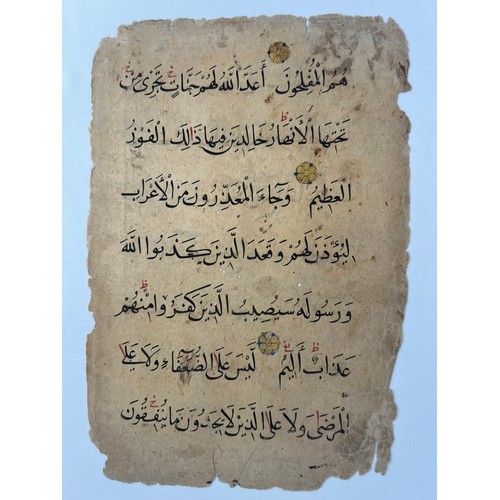 هُمُ الْمُفْلِحُونَ أَعَدَّ اللَّهُ لَهُمْ جَنَّاتٍ تَجْرِى مِنْ
تَحْتِهَا الْأَنْهَارُ خَالِدِينَ فِيهَا ذَالِكَ الْفَوْزُ
الْعَظِيمُ وَجَاءَ الْمُعَذِّرُونَ مِنَ الْأَعْرَابِ
لِيُؤْذَنَ لَهُمْ وَقَعَدَ الَّذِينَ كَذَبُوا اللَّهَ
وَرَسُولَهُ سَيُصِيبُ الَّذِينَ كَفَرُوا مِنْهُمْ
عَذَابٌ أَلِيمٌ لَيْسَ عَلَى الضُّعَفَاءِ وَلَا عَلَى
الْمَرْضَى وَلَا عَلَى الَّذِينَ لَا يَجِدُونَ مَا يُنْفِقُونَ